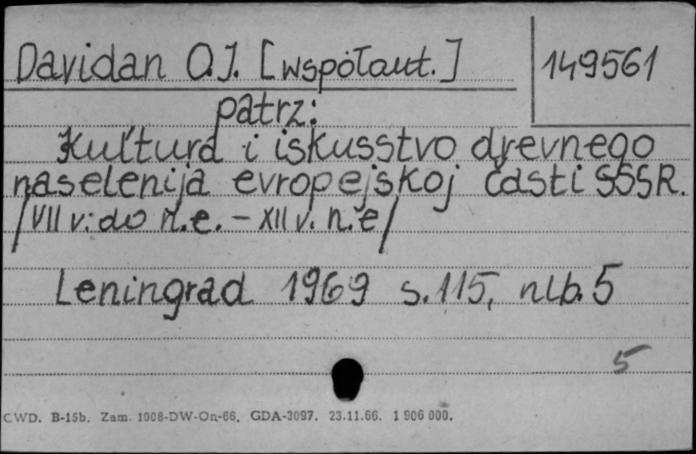 Davidan O.I. [współaut.] 149561
patrz:
Kul'tura i iskusstvo drevnego
naselenija evropejskoj časti SSSR.
/VII v. do n.e. – XII v. n.e/
Leningrad 1969 s.115, nlb. 5
5
CWD. B-15b. Zam. 1008-DW-On-66. GDA-3097. 23.11.66. 1 906 000.